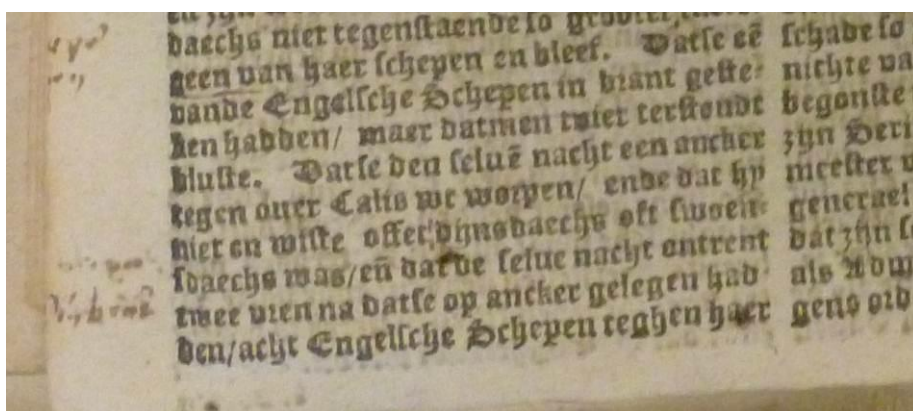 daechs niet tegenstaende so
geen van haer schepen en bleef. Datse eē
vande Engelsche Schepen in brant geste-
ken hadden/ maer datmen twiet terstondt
bluste. Datse den seluē nacht een ancker
tegen ouer Calis wt worpen/ ende dat hy
niet en wiste offet dijnsdaechs oft swoen-
sdaechs was/ eñ dat de selue nacht ontrent
twee vren na datse op ancker gelegen had-
den/ acht Engelsche Schepen teghen haer
schade so
nichte
begonste
zijn
meester
generael
dat zijn
als
gens